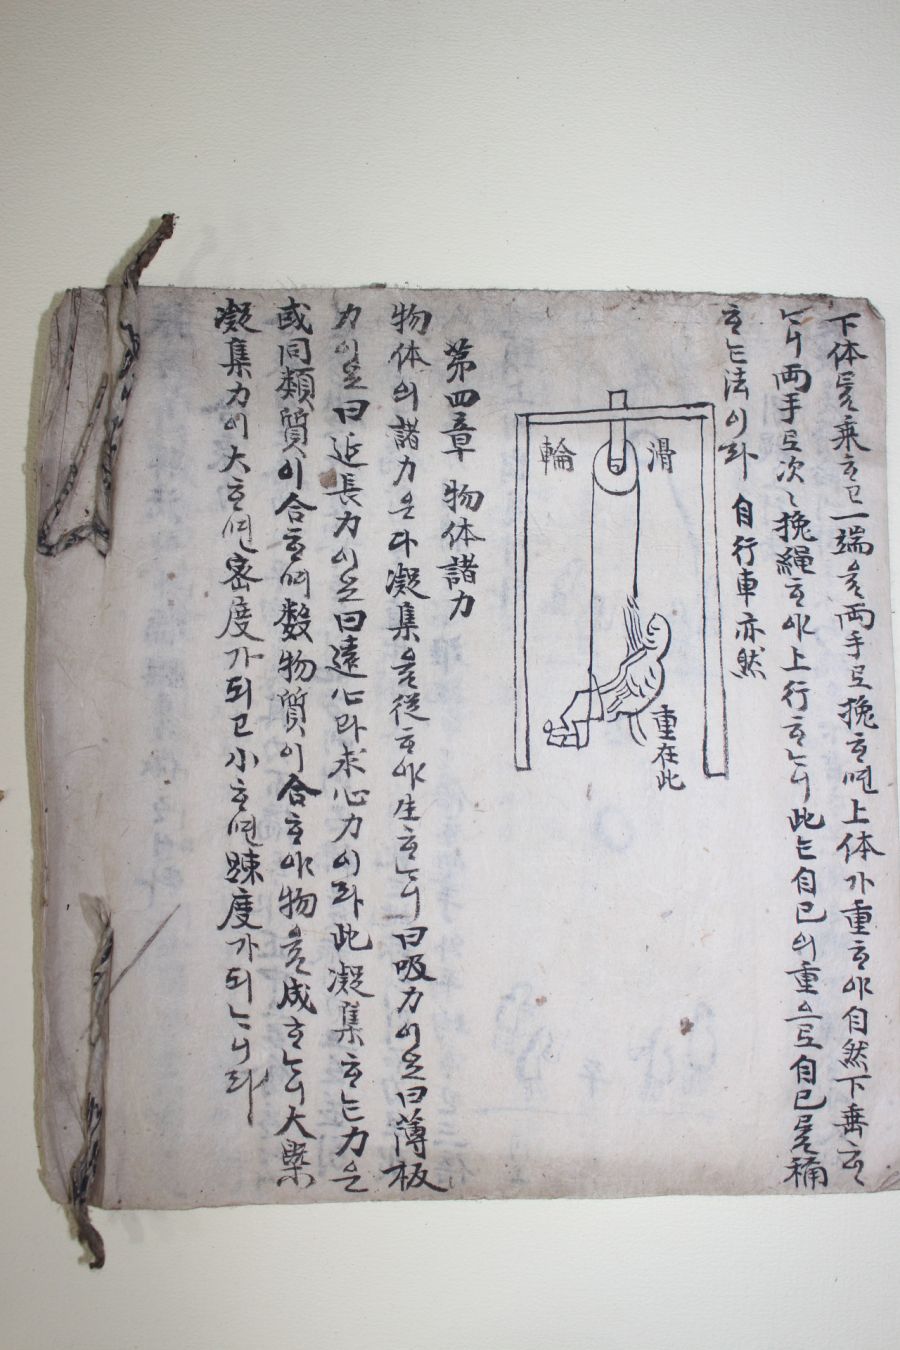 下体를乗ᄒᆞ고一端을両手로挽ᄒᆞ면上体가重ᄒᆞ야自然下垂ᄒᆞ
ᄂᆞ니両手로次〻挽繩ᄒᆞ야上行ᄒᆞᄂᆞ니此ᄂᆞᆫ自己의重으로自己를稱
ᄒᆞᄂᆞᆫ法이라 自行車亦然
滑
輪
重在此
第四章 物体諸力
物体의諸力은다凝集을從ᄒᆞ야生ᄒᆞᄂᆞ니曰吸力이오曰薄板
力이오曰近長力이오曰遠心과求心力이라此凝集ᄒᆞᄂᆞᆫ力은
或同類質이合ᄒᆞ며数物質이合ᄒᆞ야物을成ᄒᆞᄂᆞ니大槩
凝集力이大ᄒᆞ면密度가되고小ᄒᆞ면踈度가되ᄂᆞ니라